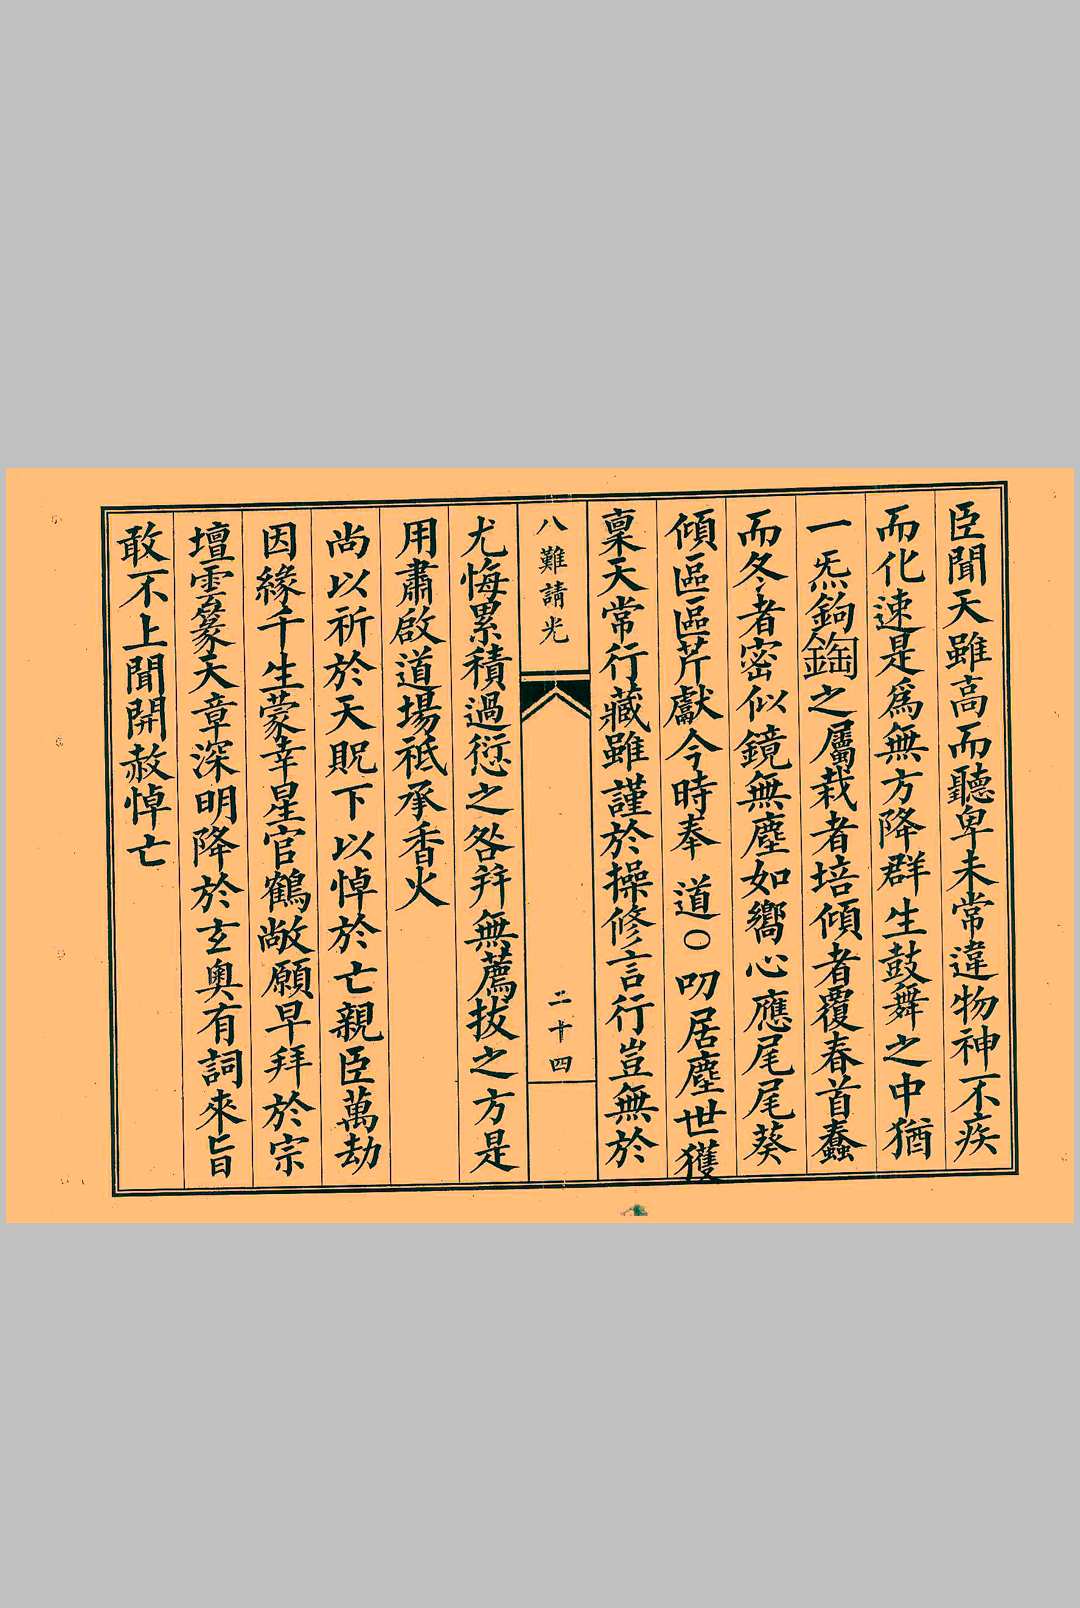 臣聞天雖高而聽卑未常違物神不疾
而化速是爲無方降群生鼓舞之中猶
一炁鉤鋾之屬栽者培傾者覆春首蠢
而冬者密似鏡無塵如嚮心應尾尾葵
傾區區芹獻今時奉 道〇 叨居塵世獲
稟天常行藏雖謹於操修言行豈無於
八難請光 二十四
尤悔累積過愆之咎并無薦拔之方是
用肅啟道場祗承香火
尚以祈於天貺下以悼於亡親臣萬劫
因緣千生蒙幸星官鶴敞願早拜於宗
壇雲篆天章深明降於玄奧有詞來旨
敢不上聞開赦悼亡